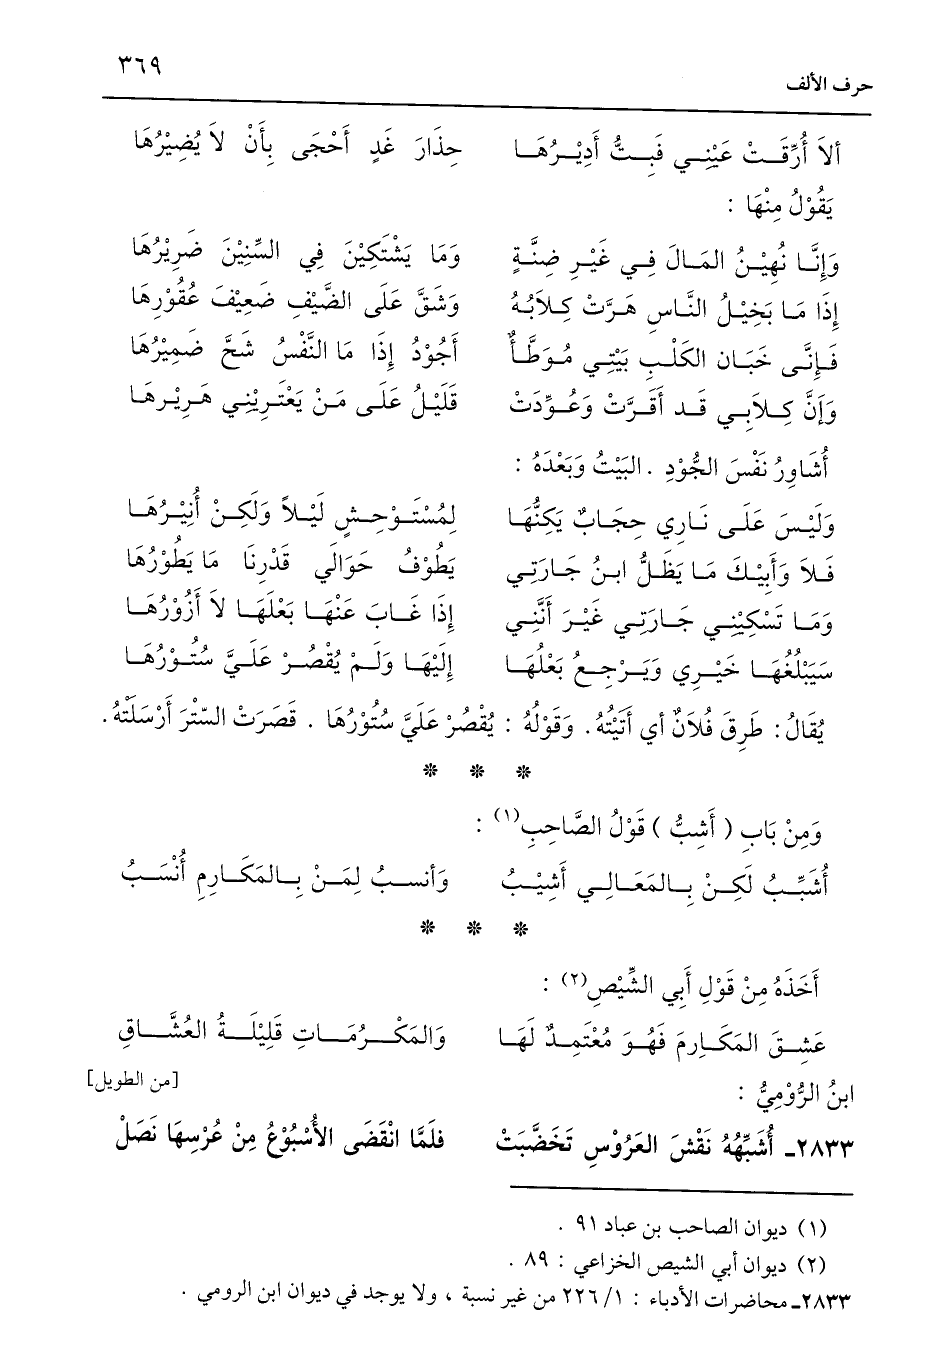 ٣٦٩
حرف الألف
أَلاَ أُرِّقَتْ عَيْنِي فَبِتُّ أُدِيْرُهَا حِذَارَ غَدٍ أَحْجَى بِأَنْ لاَ يُضِيْرُهَا
يَقُوْلُ مِنْهَا :
وَإِنَّا نُهِيْنُ المَالَ فِي غَيْرِ ضِنَّةٍ وَمَا يَشْتَكِيْنَ فِي السِّنِيْنَ ضَرِيْرُهَا
إِذَا مَا بَخِيْلُ النَّاسِ هَرَّتْ كِلاَبُهُ وَشَقَّ عَلَى الضَّيْفِ ضَعِيْفَ عُقُوْرِهَا
فَإِنَّى خَبَان الكَلْبِ بَيْتِي مُوَطَّأٌ أَجُوْدُ إِذَا مَا النَّفْسُ شَحَّ ضَمِيْرُهَا
وَإَنَّ كِلاَبِي قَد أَقَرَّتْ وَعُوِّدَتْ قَلِيْلُ عَلَى مَنْ يَعْتَرِيْنِي هَرِيْرهَا
أُشَاوِرُ نَفْسَ الجُّوْدِ . البَيْتُ وَبَعْدَهُ :
وَلَيْسَ عَلَى نَارِي حِجَابٌ يَكنُّهَا لِمُسْتَوْحِشٍ لَيْلاً وَلَكِنْ أُنِيْرُهَا
فَلاَ وَأَبِيْكَ مَا يَظَلُّ ابنُ جَارَتِي يَطُوْفُ حَوَالِي قَدْرِنَا مَا يَطُوْرُهَا
وَمَا تَشْكِيْنِي جَارَتِي غَيْرَ أَنَّنِي إِذَا غَابَ عَنْهَا بَعْلَهَا لاَ أَزُوْرُهَا
سَيَبْلُغُهَا خَيْرِي وَيَرْجِعُ بَعْلُهَا إِلَيْهَا وَلَمْ يُقْصُرْ عَلَيَّ سُتُوْرُهَا
يُقَالُ : طَرِقَ فُلاَنٌ أي أَتَيْتُهُ . وَقَوْلُهُ : يُقْصُرْ عَلَيَّ سُتُوْرُهَا . قَصَرَتْ السّتْرَ أَرْسَلْتُهُ .
* * *
وَمِنْ بَابِ ( أَشِبُّ ) قَوْلُ الصَّاحِبِ(١) :
أُشَبِّبُ لَكِنْ بِالمَعَالِي أَشِيْبُ وَأنسبُ لِمَنْ بِالمَكَارِمِ أُنْسَبُ
* * *
أَخَذَهُ مِنْ قَوْلِ أَبِي الشِّيْصِ(٢) :
عَشِقَ المَكَارِمَ فَهُوَ مُعْتَمِدٌ لَهَا وَالمَكْرُمَاتِ قَلِيْلَةُ العُشَّاقِ
ابنُ الرُّوْمِيُّ : [من الطويل]
٢٨٣٣ـ أُشَبِّهُهُ نَقْشَ العَرُوْسِ تَخَضَّبَتْ فَلَمَّا انْقَضَى الأُسْبُوْعُ مِنْ عُرْسِهَا نَصَلْ
(١) ديوان الصاحب بن عباد ٩١ .
(٢) ديوان أبي الشيص الخزاعي : ٨٩ .
٢٨٣٣ـ محاضرات الأدباء : ١/ ٢٢٦ من غير نسبة ، ولا يوجد في ديوان ابن الرومي .